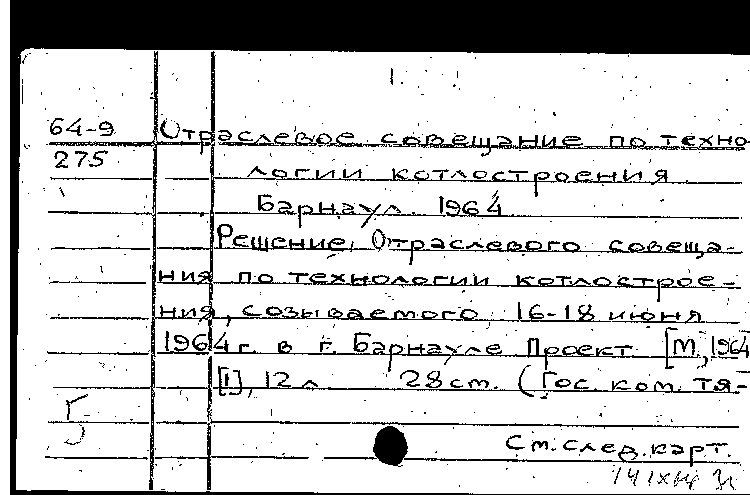 1.
64-9 Отраслевое совещание по техно-
275 логии котлостроения
Барнаул. 1964
Решение Отраслевого совеща-
ния по технологии котлострое-
ния, созываемого 16-18 июня
1964 г. в г. Барнауле Проект [М., 1964
[1], 12 л. 28 см. (Гос. ком. тя-
См. след. карт.